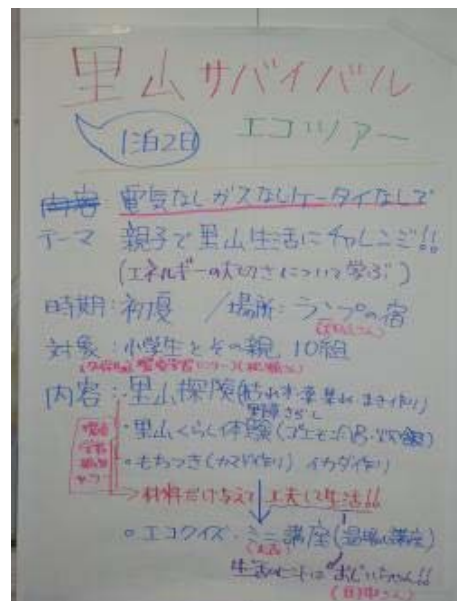 里山サバイバル
1泊2日 エコツアー
内容 電気なしガスなしケータイなしで
テーマ 親子で里山生活にチャレンジ!!
(エネルギーの大切さについて学ぶ)
時期:初夏 /場所:ランプの宿
対象:小学生とその親 10組
内容:・里山探険(枯れ木・草集め・まき作り)
野草さがし
・里山くらし体験(ゴエモン風呂・
・もちつき(カマド作り)イカダ作り
→材料だけ与えて 工夫して生活!!
○エコクイズ・ミニ講座(温暖化講座)
生活のヒントは おじいちゃん!!